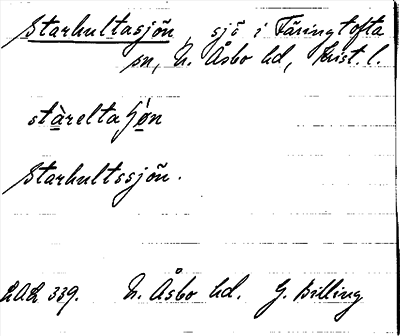 Starhultasjön, sjö i Färingtofta
sn, N. Åsbo hd, Krist. l.
stàreltaʃø̀n
Starhultssjön.
LAL 339. N. Åsbo hd. G. Billing